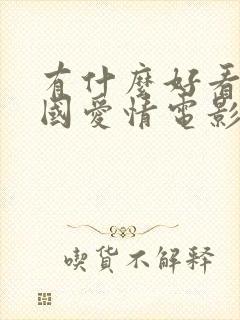 有什麼好看
國愛情電影
喫貨不解释